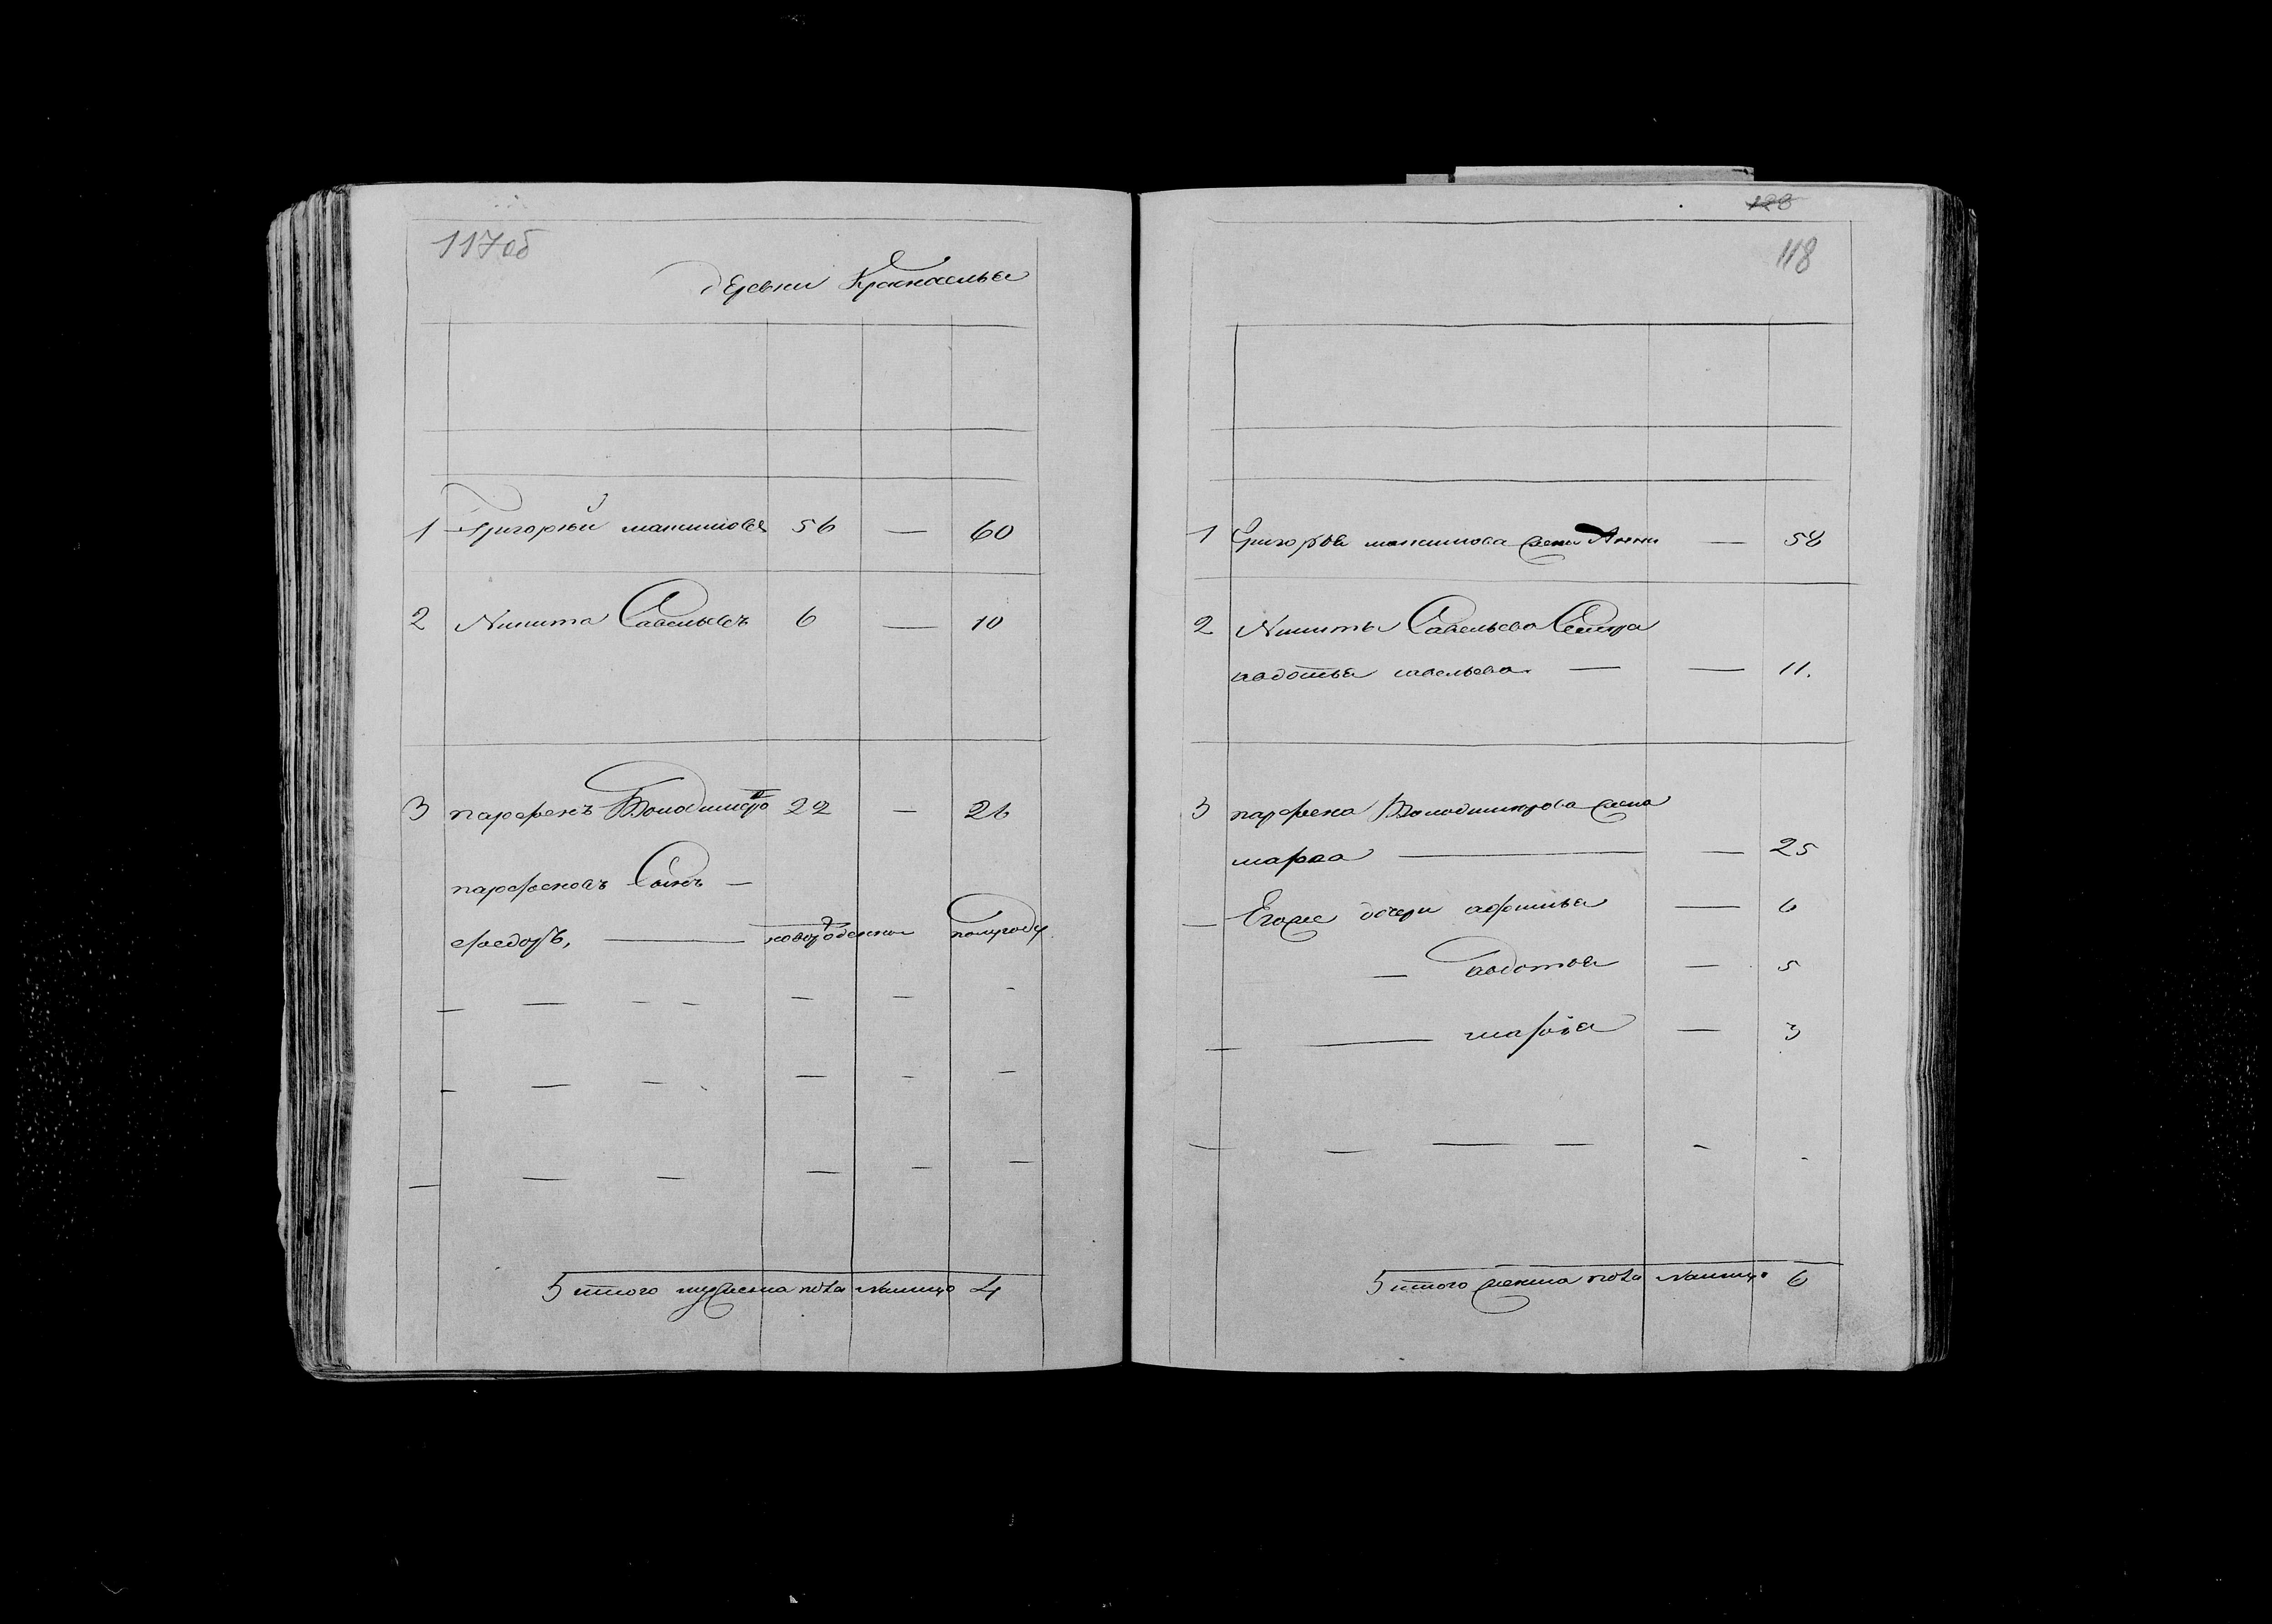 117об
деревни
1 Григорьй максимовъ 56 — 60
2 Никита Савельевъ 6 — 10
3 парфенъ Володимеровъ 22 — 26
парфеновъ Сынъ —
федоръ, — новорожденной полугоду
Jтого мужеска пола Налицо 4
128
118
1 Григорья максимова жена Анна — 58
2 Никиты Савельева Сестра
авдотья савельева — — 11.
3 парфена Володимерова жена
марфа — — 25
— Егоже дочери афимья — 6
— авдотья — 5
— марья — 3
Jтого женска пола Налицо 6